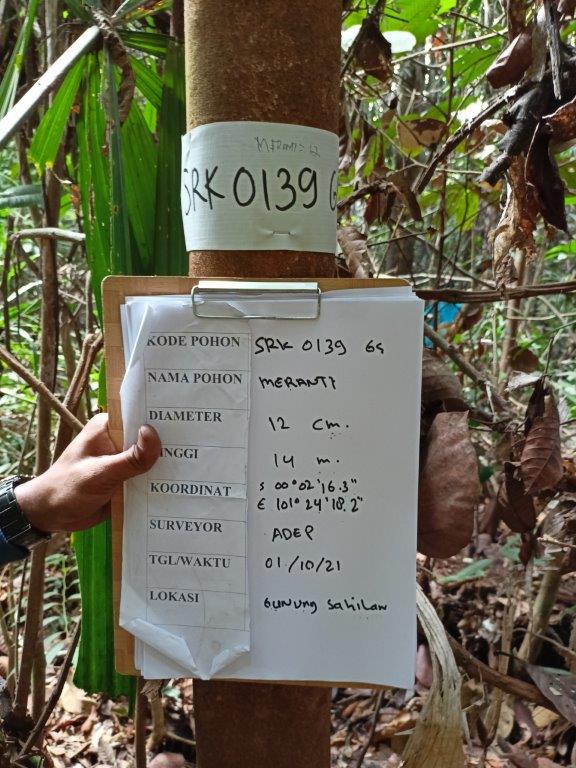 MERANTI 12
SRK 0139 G
KODE POHON SRK 0139 GS
NAMA POHON MERANTI
DIAMETER 12 cm.
INGGI 14 m.
KOORDINAT S 00°02'16.3"
E 101°24'18.2"
SURVEYOR ADEP
TGL/WAKTU 01/10/21
LOKASI Gunung Sahilan